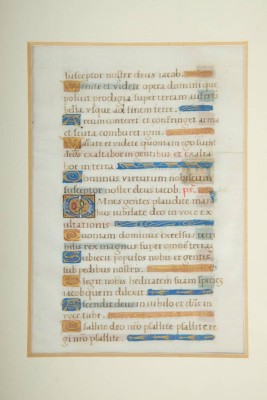 susceptor noster deus iacob.
Venite et videte opera domini que
posuit prodigia super terram auferens
bella usque ad finem terre.
Arcum conteret et confringet arma
et scuta comburet igni.
Vacate et videte quoniam ego sum
deus exaltabor in gentibus et exalta
bor in terra
Dominus virtutum nobiscum
susceptor noster deus iacob. ps.
Omnes gentes plaudite mani
bus iubilate deo in voce ex
ultationis
Quoniam dominus excelsus terri
bilis rex magnus super omnem terrā.
Subiecit populos nobis et gentes
sub pedibus nostris.
Elegit nobis hereditatem suam speciem
iacob quem dilexit
Ascendit deus in iubilo et dn̄s in
voce tube.
Psallite deo nr̄o psallite psallite re
gi nr̄o psallite